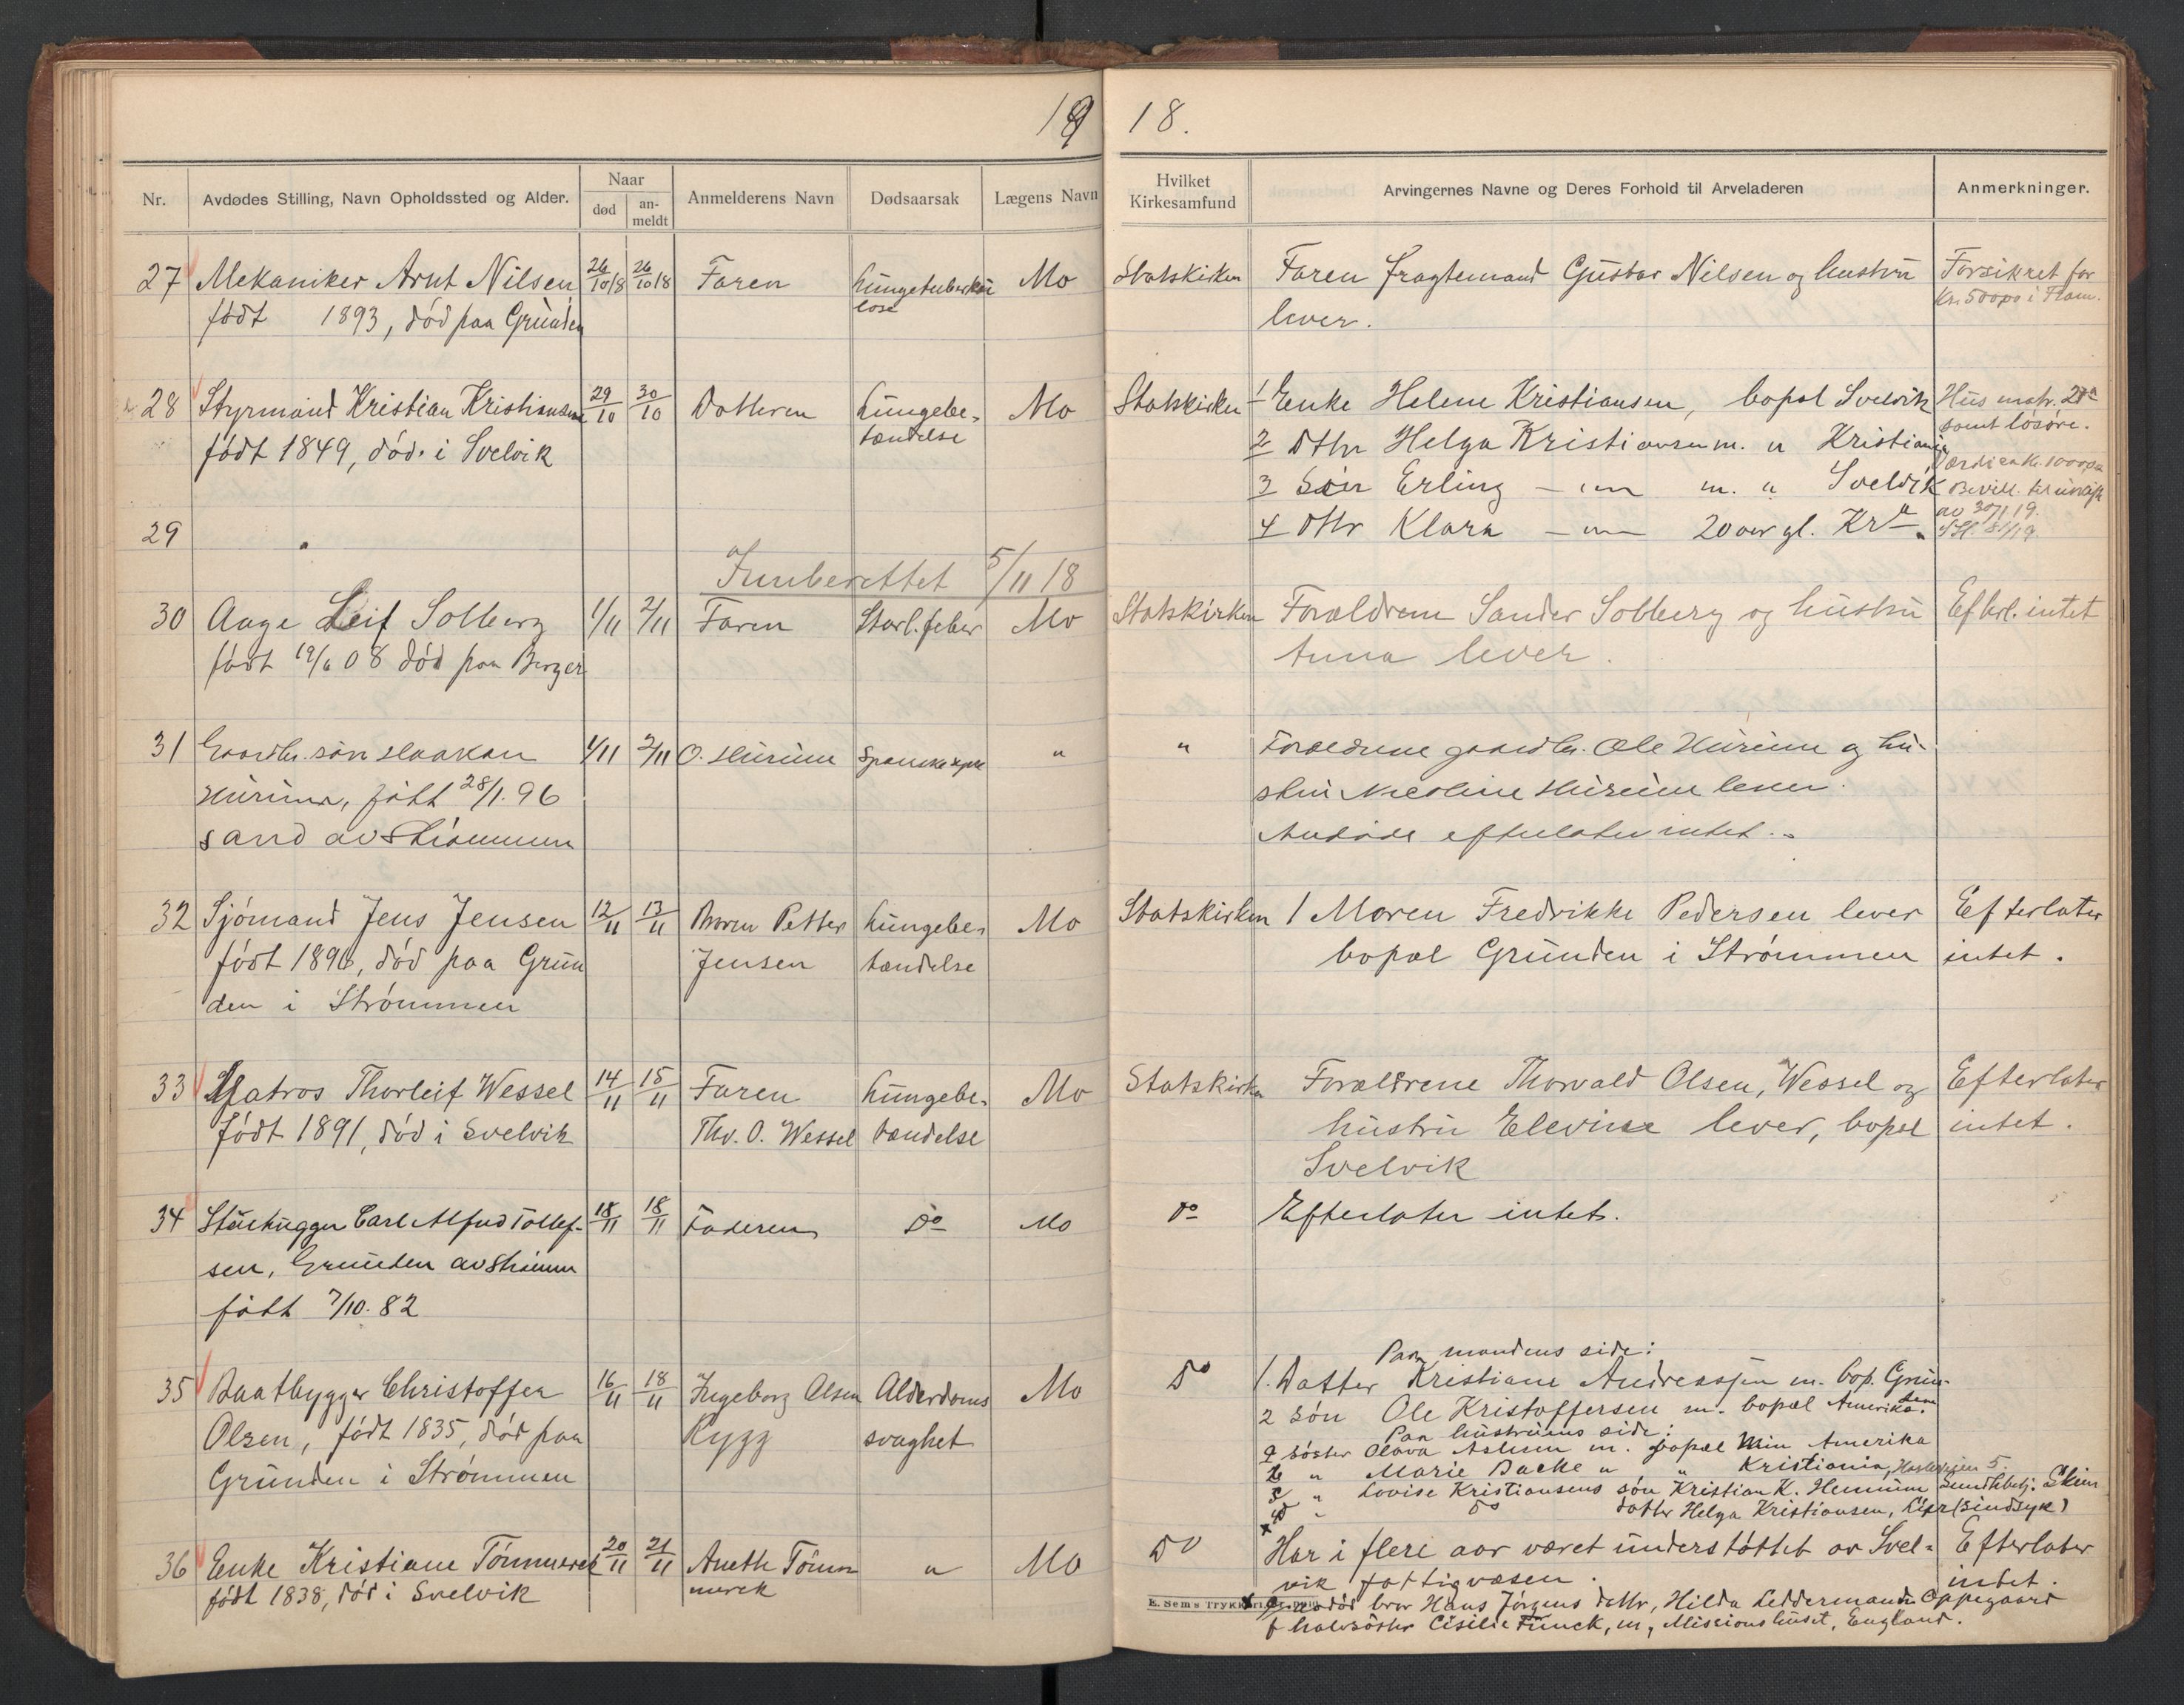 1918.
Nr. Avdødes Stilling, Navn Opholdssted og Alder. Naar død an-meldt Anmelderens Navn Dødsaarsak Lægens Navn
Hvilket Kirkesamfund Arvingernes Navne og Deres Forhold til Arveladeren Anmerkninger.
27 Mekaniker Arnt Nilsen 26/10 18 26/10 18 Faren Lungetuberku Mo Statskirken Faren fragtemand Gustav Nilsen og hustru Forsikret for
født 1893, død paa Grunden lose lever. Kr. 500,00 i Fram.
28 Styrmand Kristian Kristiansen 29/10 30/10 Datteren Lungebe- Mo Statskirken 1 Enke Helene Kristiansen, bopæl Svelvik Hus matr. 
født 1849, død i Svelvik tændelse 2 Dttr Helga Kristiansen m. " Kristiania samt løsøre.
3 Søn Erling — " — m. " Svelvik Værdi ca Kr. 1000,00
29 4 Dttr Klara — " — 20 aar gl. Kra. av 30/1 19.
Innberettet 5/11 18
30 Aage Leif Solberg 1/11 2/11 Faren Skarl.feber Mo Statskirken Forældrene Sander Solberg og hustru Efterl. intet
født 19/6 08 død paa Berger Anna lever.
31 Gaardbr. søn Haakon 1/11 2/11 O. Hurum Spanske syke " " Forældrene gaardbr. Ole Hurum og hu-
Hurum, født 28/1. 96 stru Nicoline Hurum lever.
Sand av Strømmen Avdøde efterlater intet.
32 Sjømand Jens Jensen 12/11 13/11 Broren Petter Lungebe- Mo Statskirken 1 Moren Fredrikke Pedersen lever Efterlater
født 1896, død paa Grun Jensen tændelse bopæl Grunden i Strømmen intet.
den i Strømmen
33 Matros Thorleif Wessel 14/11 15/11 Faren Lungebe- Mo Statskirken Forældrene Thorvald Olsen, Wessel og Efterlater
født 1891, død i Svelvik Thv. O. Wessel tændelse hustru Elevine lever, bopæl intet.
Svelvik
34 Stenhugger Carl Alfred Tollef- 18/11 18/11 Faderen Do Mo do Efterlater intet.
sen, Grunden av Strømm
født 7/10. 82
Paa mandens side:
35 Baatbygger Christoffer 16/11 18/11 Ingeborg Olsen Alderdoms Mo Do 1. Datter Kristiane Andreassen m. bop. Grun-
Olsen, født 1835, død paa Rygg svaghet 2 Søn Ole Kristoffersen m. bopæl Amerika. den
Paa hustruens side:
Grunden i Strømmen søster Olava m. bopæl Amerika
" Marie Backe " " Kristiania, 5.
" Lovise Kristiansens søn Kristian K. Hennum Skien
" do datter Helga Kristiansen, Lier (Sindsyk)
36 Enke Kristiane Tømmerek 20/11 21/11 Anette Tøm " Mo Do Har i flere aar været understøttet av Svel- Efterlater
født 1838, død i Svelvik merek vik fattigvæsen. intet.
E. Sem's Trykkeri
avdød bror Hans Jørgens dattr, Hilda Leddermand Oppegaard
halvsøster Cisilie Funck, m, Missionshuset, England.